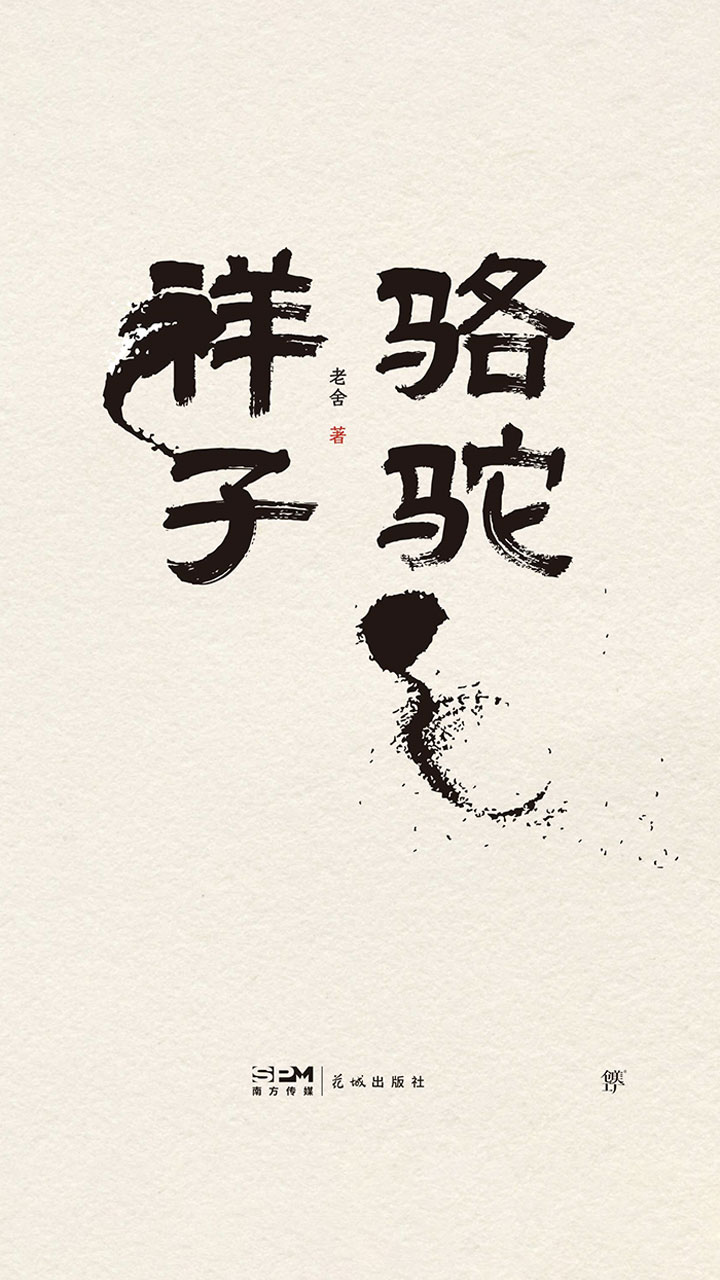 骆驼
祥子
老舍 著
SPM
南方传媒
花城出版社
创美工厂